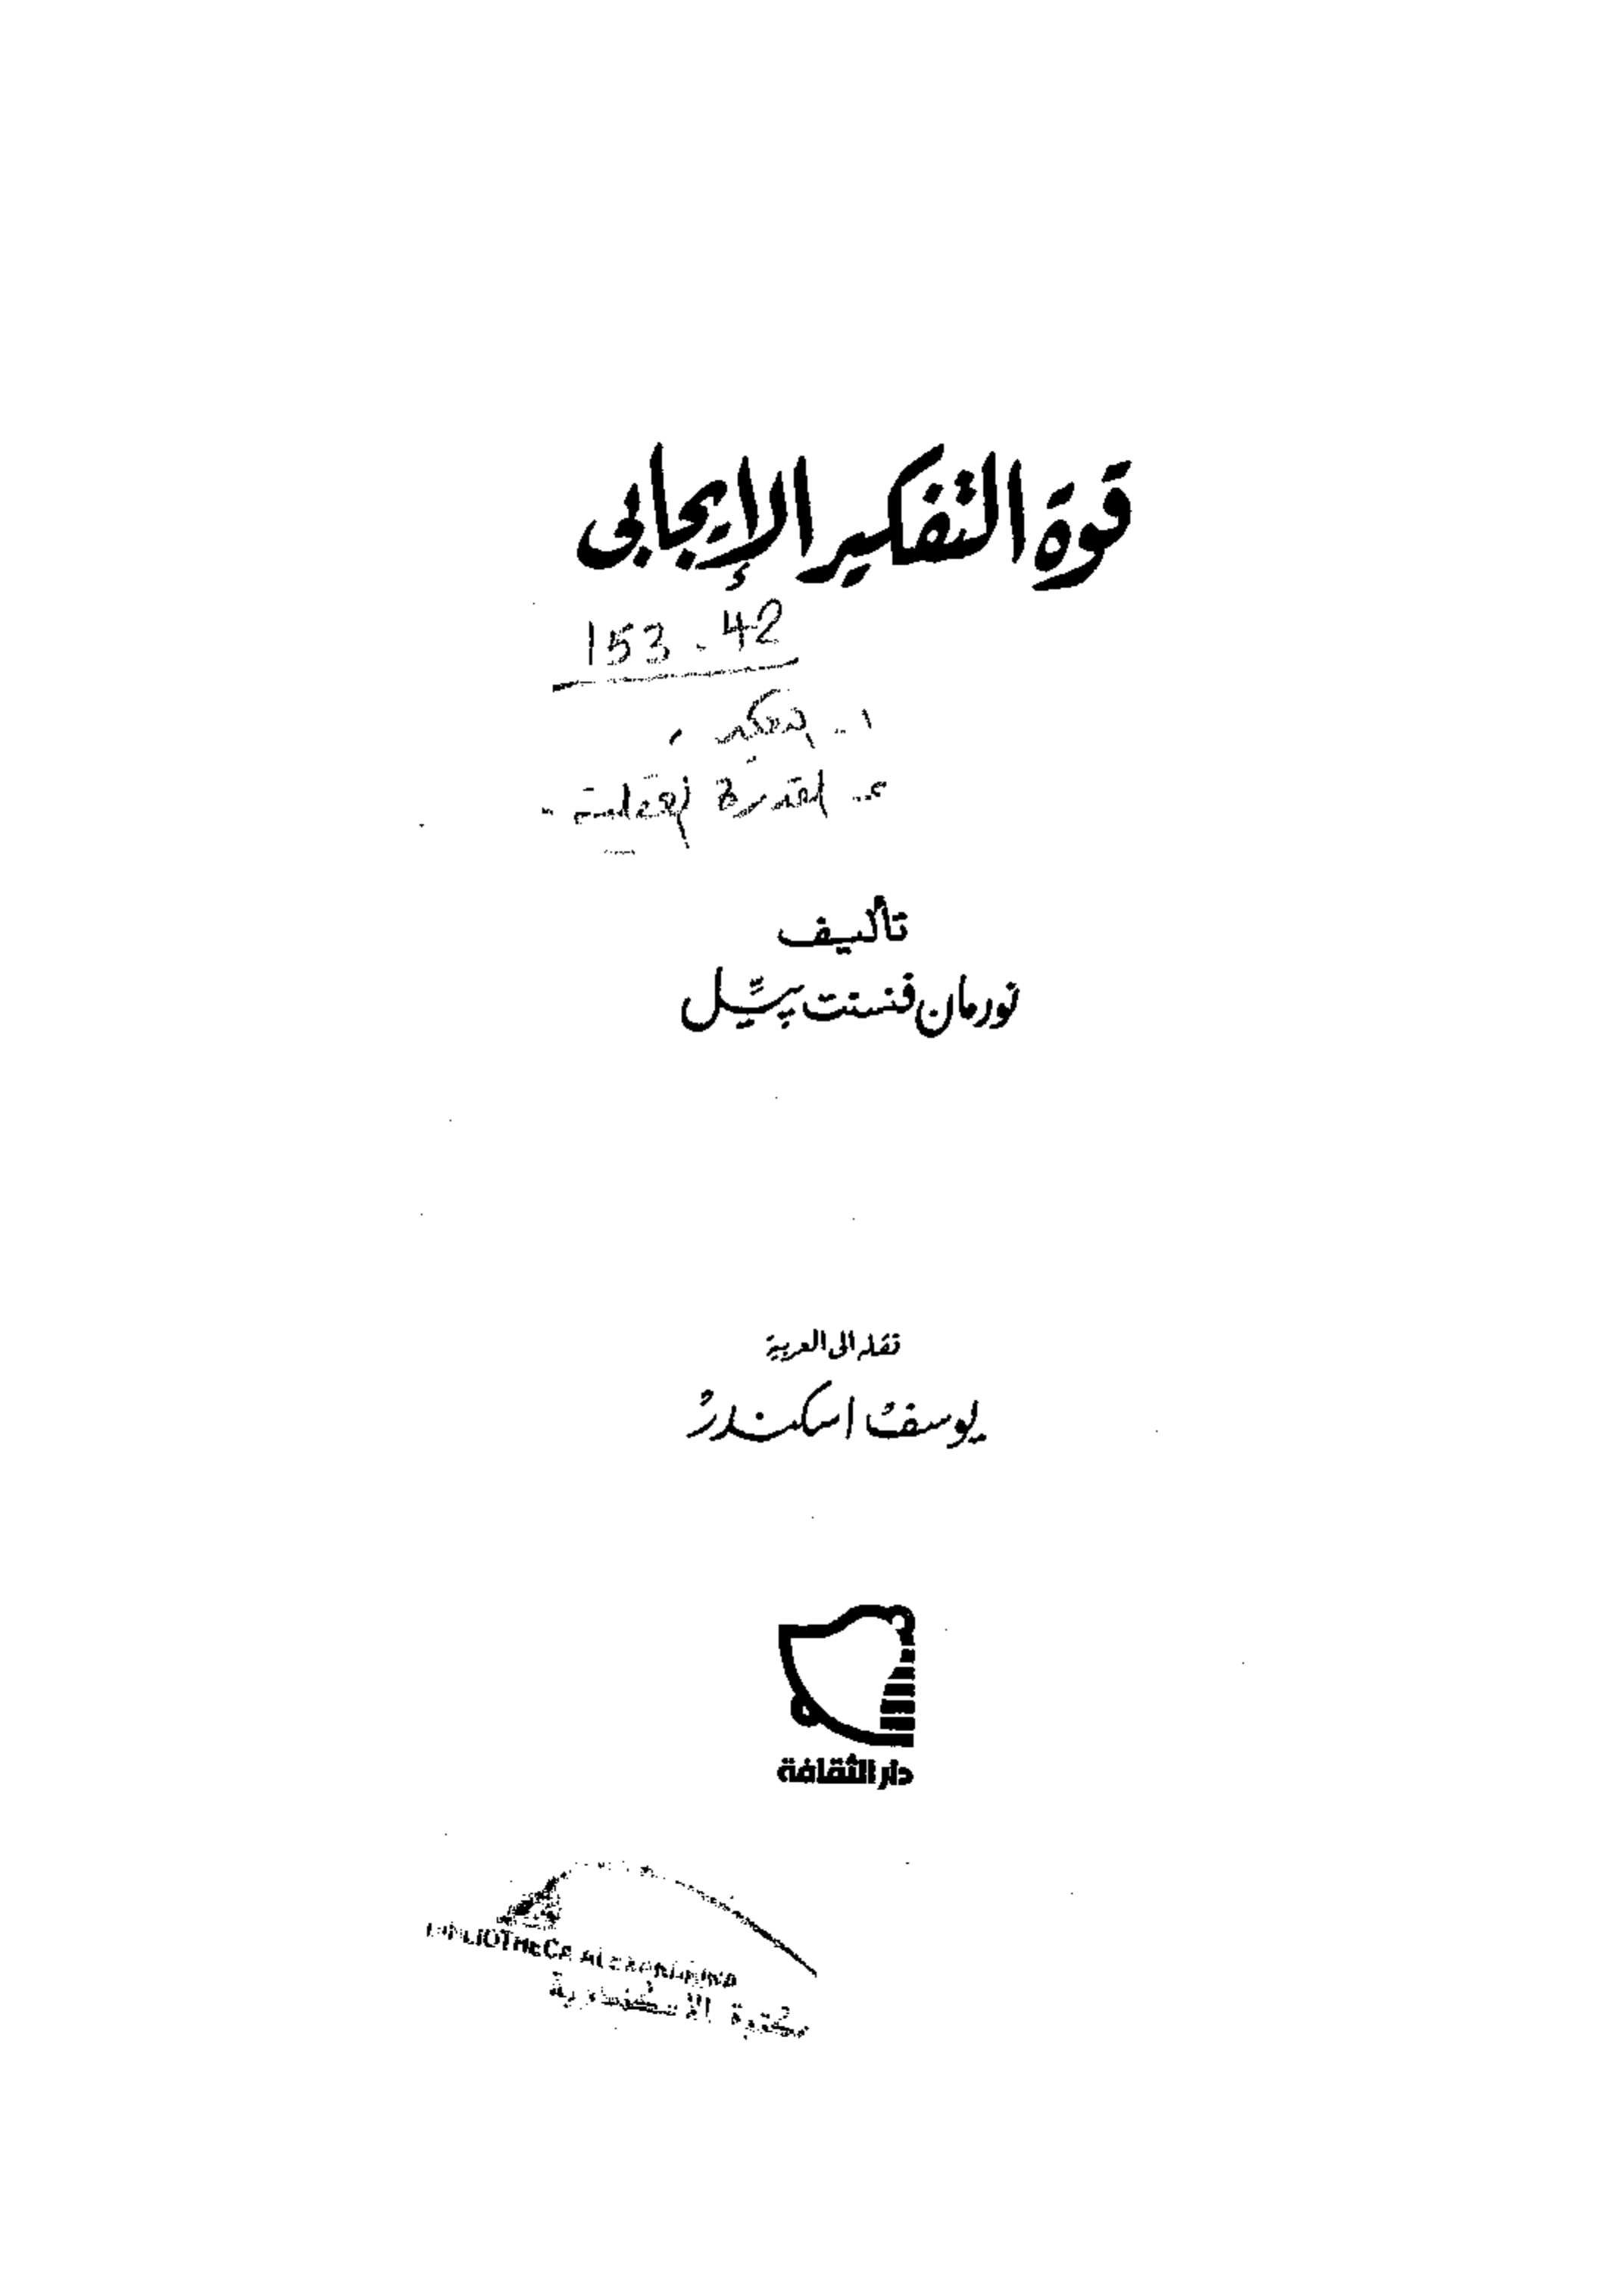 قوة التفكير الإيجابى
153.42
١- التفكير .
٢- القدرة العقلية -
تأليف
نورمان فنسنت پيل
نقله الى العربية
يوسف اسكندر
دار الثقافة
BIBLIOTHECA ALEXANDRINA
مكتبة الاسكندرية